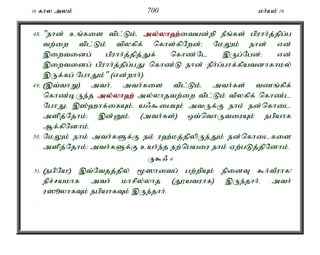 16 கால அலம் 700 மர்யம் 19
48. "நான் உங்களை விட்டும், அல்லாஹ்வையன்றி நீங்கள் பிரார்த்திப்ப
வற்றை விட்டும் விலகிக் கொள்கிறேன்; மேலும் நான் என்
இறைவனைப் பிரார்த்தித்துக் கொண்டே இருப்பேன்; என்
இறைவனைப் பிரார்த்திப்பது கொண்டு நான் நிர்ப்பாக்கியவனாகாமல்
இருக்கப் போதும்" (என்றார்).
49. (இவ்வாறு) அவர், அவர்களை விட்டும், அவர்கள் வணங்கிக்
கொண்டிருந்த அல்லாஹ் அல்லாதவற்றை விட்டும் விலகிக் கொண்ட
போது, இஸ்ஹாக்கையும், யஃகூபையும் அவருக்கு நாம் நன்கொடை
அளித்தோம்; இன்னும், (அவர்கள்) ஒவ்வொருவரையும் நபியாக
ஆக்கினோம்.
50. மேலும் நாம் அவர்களுக்கு நம் ரஹ்மத்திலிருந்தும் நன்கொடைகளை
அளித்தோம்; அவர்களுக்கு உயர்ந்த நற்பெயரை நாம் ஏற்படுத்தினோம்.
ருகூஃ 4
51. (நபியே!) இவ்வேதத்தில் மூஸாவைப் பற்றியும் நினைவு கூர்வீராக;
நிச்சயமாக அவர் மாசில்லாத (தூயவராக) இருந்தார். அவர்
ரஸூலாகவும் நபியாகவும் இருந்தார்.